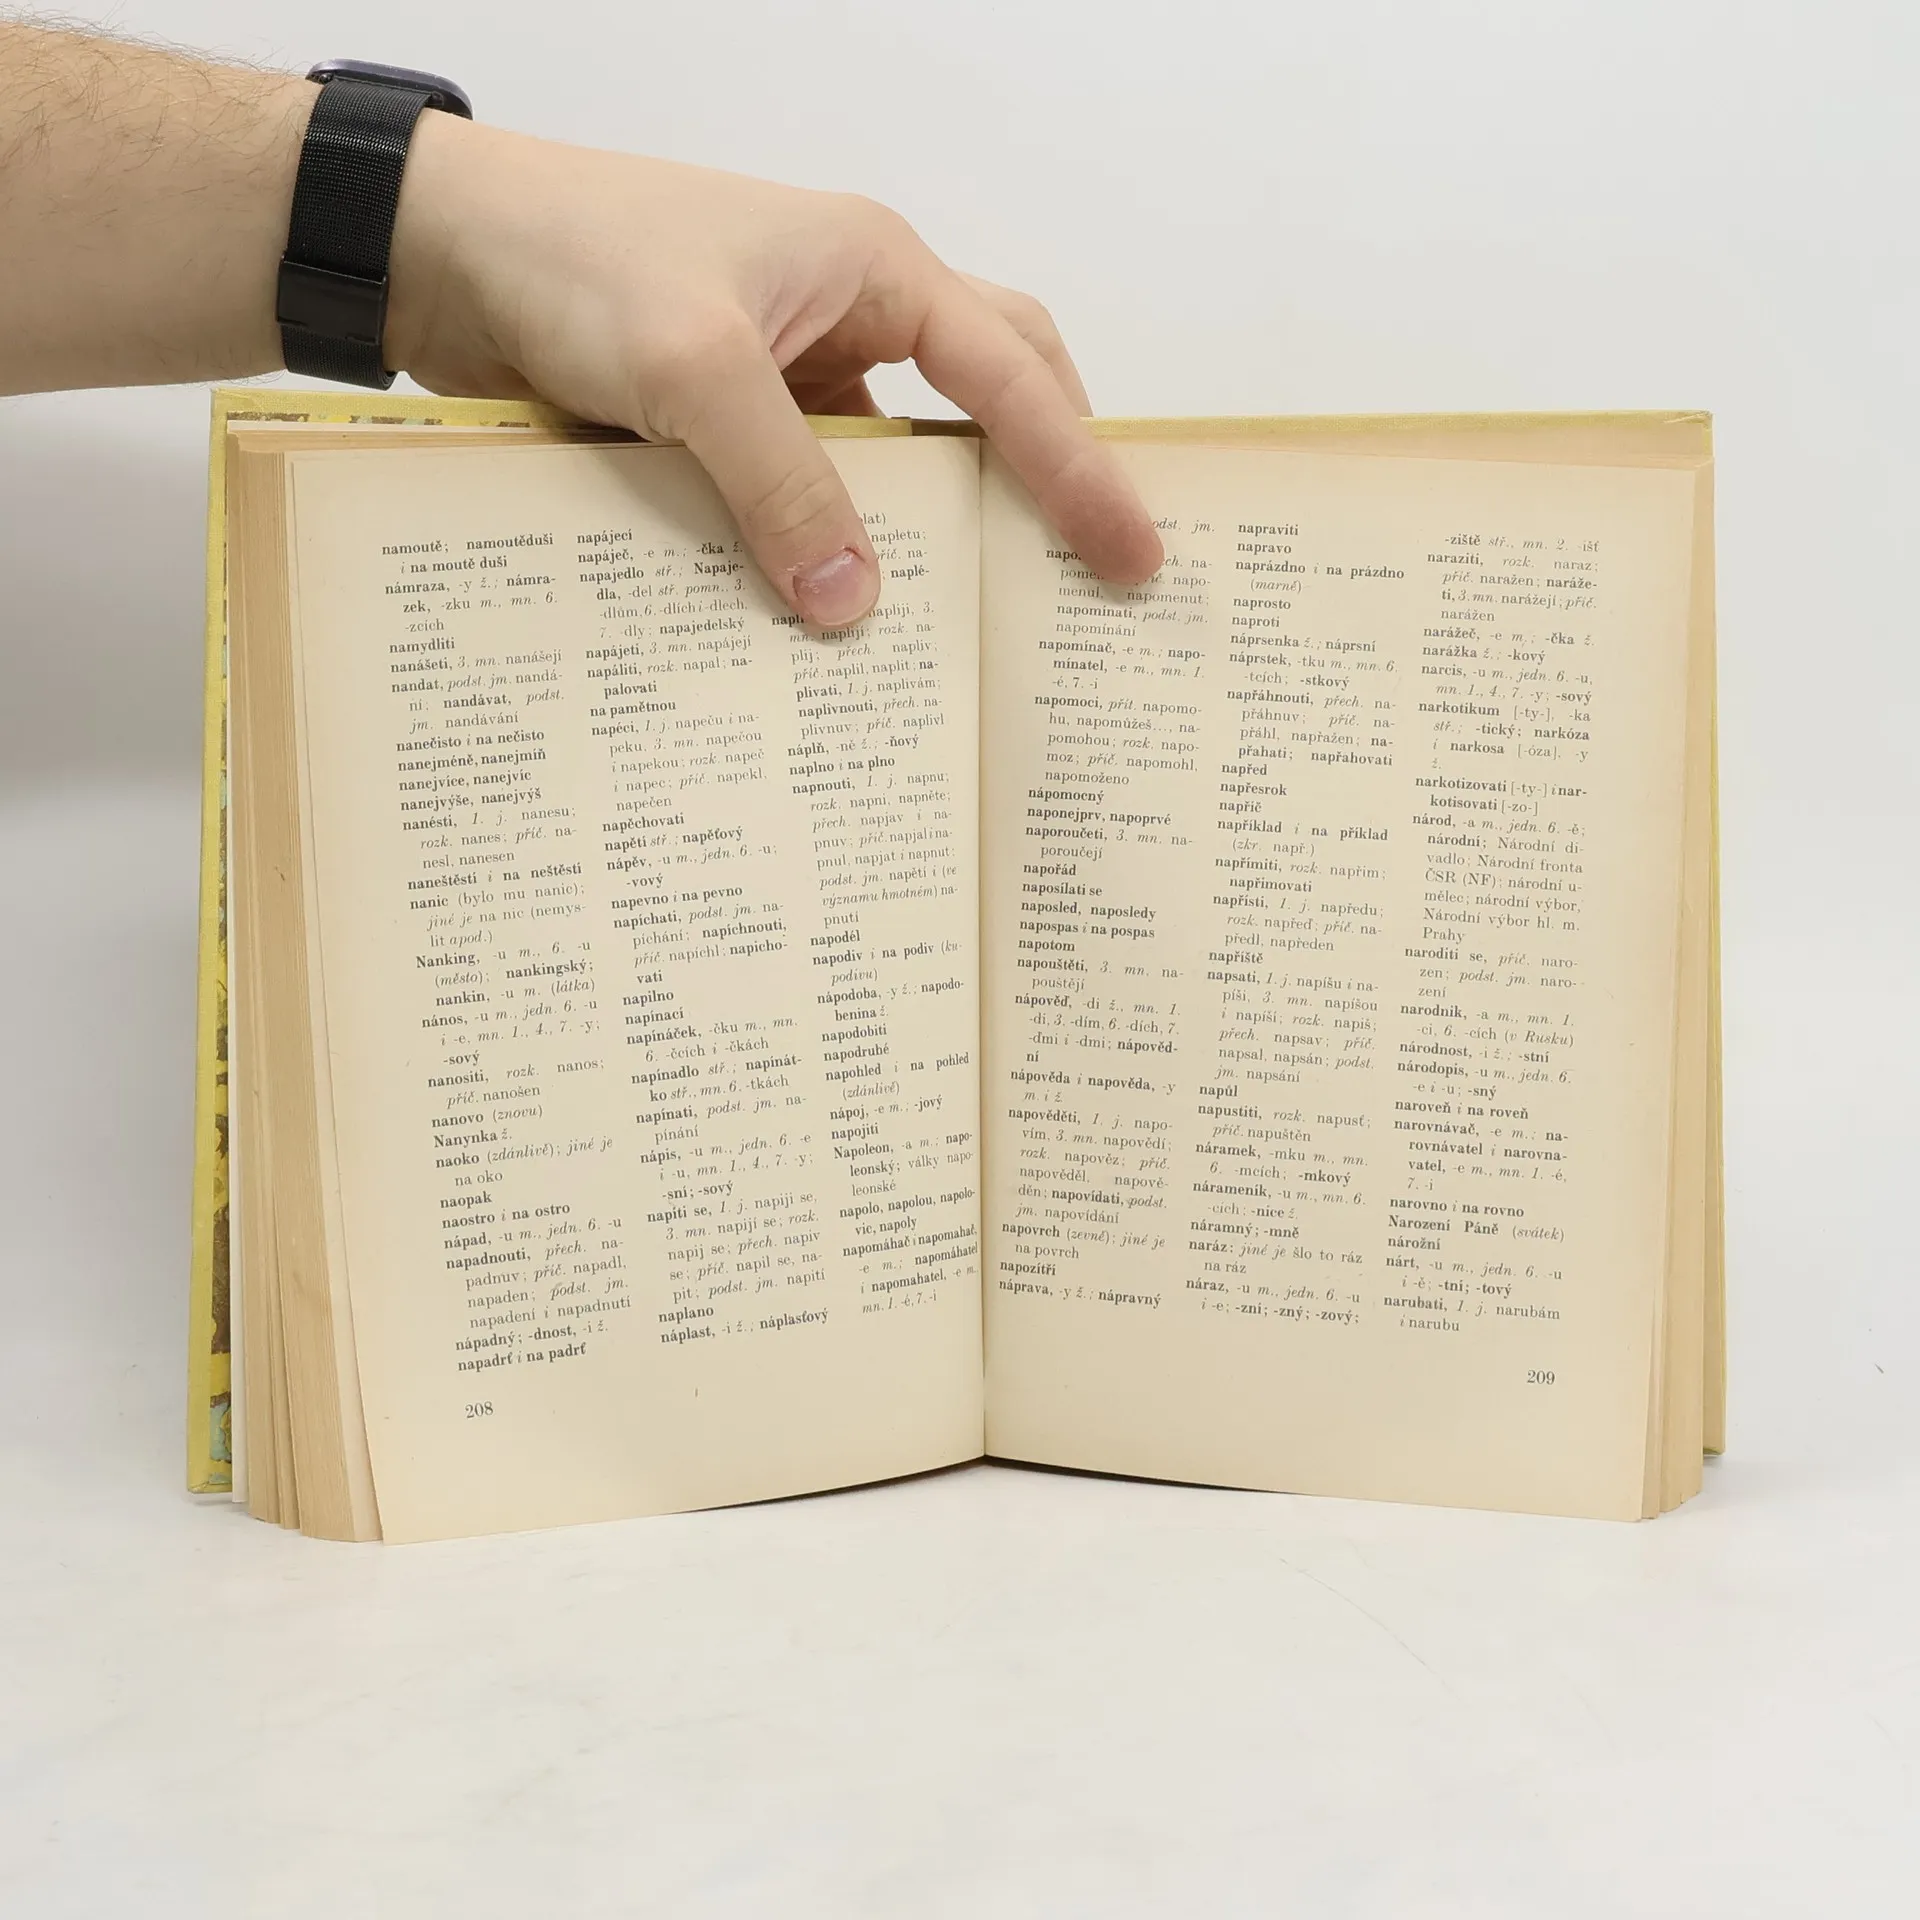 namoutě; namoutěduši
i na moutě duši
námraza, -y ž.; námra-
zek, -zku m., mn. 6.
-zcích
namydliti
nanášeti, 3. mn. nanášejí
nandat, podst. jm. nandá-
ní; nandávat, podst.
jm. nandávání
nanečisto i na nečisto
nanejméně, nanejmíň
nanejvíce, nanejvíc
nanejvýše, nanejvýš
nanésti, 1. j. nanesu;
rozk. nanes; příč. na-
nesl, nanesen
naneštěstí i na neštěstí
nanic (bylo mu nanic);
jiné je na nic (nemys-
lit apod.)
Nanking, -u m., 6. -u
(město); nankingský;
nankin, -u m. (látka)
nános, -u m., jedn. 6. -u
i -e, mn. 1., 4., 7. -y;
-sový
nanositi, rozk. nanos;
příč. nanošen
nanovo (znovu)
Nanynka ž.
naoko (zdánlivě); jiné je
na oko
naopak
naostro i na ostro
nápad, -u m., jedn. 6. -u
napadnouti, přech. na-
padnuv; příč. napadl,
napaden; podst. jm.
napadení i napadnutí
nápadný; -dnost, -i ž.
napadrť i na padrť
napájecí
napáječ, -e m.; -čka ž.
napajedlo stř.; Napaje-
dla, -del stř. pomn., 3.
-dlům, 6. -dlích i -dlech,
7. -dly; napajedelský
napájeti, 3. mn. napájejí
napáliti, rozk. napal; na-
palovati
na pamětnou
napéci, 1. j. napeču i na-
peku, 3. mn. napečou
i napekou; rozk. napeč
i napec; příč. napekl,
napečen
napěchovati
napětí stř.; napěťový
nápěv, -u m., jedn. 6. -u;
-vový
napevno i na pevno
napíchati, podst. jm. na-
píchání; napíchnouti,
příč. napíchl; napicho-
vati
napilno
napínací
napínáček, -čku m., mn.
6. -čcích i -čkách
napínadlo stř.; napínát-
ko stř., mn. 6. -tkách
napínati, podst. jm. na-
pínání
nápis, -u m., jedn. 6. -e
i -u, mn. 1., 4., 7. -y;
-sní; -sový
napíti se, 1. j. napiji se,
3. mn. napijí se; rozk.
napij se; přech. napiv
se; příč. napil se, na-
pit; podst. jm. napití
naplano
náplast, -i ž.; náplasťový
lat)
napletu;
příč. na-
naplé-
napl
napliji, 3.
mn. naplijí; rozk. na-
plij; přech. napliv;
příč. naplil, naplit; na-
plivati, 1. j. naplivám;
naplivnouti, přech. na-
plivnuv; příč. naplivl
náplň, -ně ž.; -ňový
naplno i na plno
napnouti, 1. j. napnu;
rozk. napni, napněte;
přech. napjav i na-
pnuv; příč. napjal i na-
pnul, napjat i napnut;
podst. jm. napětí i (ve
významu hmotném) na-
pnutí
napodél
napodiv i na podiv (ku-
podivu)
nápodoba, -y ž.; napodo-
benina ž.
napodobiti
napodruhé
napohled i na pohled
(zdánlivě)
nápoj, -e m.; -jový
napojiti
Napoleon, -a m.; napo-
leonský; války napo-
leonské
napolo, napolou, napolo-
vic, napoly
napomáhač i napomahač,
-e m.; napomáhatel
i napomahatel, -e m.
mn. 1. -é, 7. -i
208
odst. jm.
napo
přech. na-
pomen
příč. napo-
menul, napomenut;
napomínati, podst. jm.
napomínání
napomínač, -e m.; napo-
mínatel, -e m., mn. 1.
-é, 7. -i
napomoci, přít. napomo-
hu, napomůžeš..., na-
pomohou; rozk. napo-
moz; příč. napomohl,
napomoženo
nápomocný
naponejprv, napoprvé
naporoučeti, 3. mn. na-
poroučejí
napořád
naposílati se
naposled, naposledy
napospas i na pospas
napotom
napouštěti, 3. mn. na-
pouštějí
nápověď, -di ž., mn. 1.
-di, 3. -dím, 6. -dích, 7.
-ďmi i -dmi; nápověd-
ní
nápověda i napověda, -y
m. i ž.
napověděti, 1. j. napo-
vím, 3. mn. napovědí;
rozk. napověz; příč.
napověděl, napově-
děn; napovídati, podst.
jm. napovídání
napovrch (zevně); jiné je
na povrch
napozítří
náprava, -y ž.; nápravný
napraviti
napravo
naprázdno i na prázdno
(marně)
naprosto
naproti
náprsenka ž.; náprsní
náprstek, -tku m., mn. 6.
-tcích; -stkový
napřáhnouti, přech. na-
přáhnuv; příč. na-
přáhl, napřažen; na-
přahati; napřahovati
napřed
napřesrok
napříč
například i na příklad
(zkr. např.)
napřímiti, rozk. napřim;
napřimovati
napřísti, 1. j. napředu;
rozk. napřeď; příč. na-
předl, napředen
napříště
napsati, 1. j. napíšu i na-
píši, 3. mn. napíšou
i napíší; rozk. napiš;
přech. napsav; příč.
napsal, napsán; podst.
jm. napsání
napůl
napustiti, rozk. napusť;
příč. napuštěn
náramek, -mku m., mn.
6. -mcích; -mkový
nárameník, -u m., mn. 6.
-cích; -nice ž.
náramný; -mně
naráz; jiné je šlo to ráz
na ráz
náraz, -u m., jedn. 6. -u
i -e; -zní; -zný; -zový;
-ziště stř., mn. 2. -išť
naraziti, rozk. naraz;
příč. naražen; naráže-
ti, 3. mn. narážejí; příč.
narážen
narážeč, -e m.; -čka ž.
narážka ž.; -kový
narcis, -u m., jedn. 6. -u,
mn. 1., 4., 7. -y; -sový
narkotikum [-ty-], -ka
stř.; -tický; narkóza
i narkosa [-óza], -y
ž.
narkotizovati [-ty-] i nar-
kotisovati [-zo-]
národ, -a m., jedn. 6. -ě;
národní; Národní di-
vadlo; Národní fronta
ČSR (NF); národní u-
mělec; národní výbor,
Národní výbor hl. m.
Prahy
naroditi se, příč. naro-
zen; podst. jm. naro-
zení
narodnik, -a m., mn. 1.
-ci, 6. -cích (v Rusku)
národnost, -i ž.; -stní
národopis, -u m., jedn. 6.
-e i -u; -sný
naroveň i na roveň
narovnávač, -e m.; na-
rovnávatel i narovna-
vatel, -e m., mn. 1. -é,
7. -i
narovno i na rovno
Narození Páně (svátek)
nárožní
nárt, -u m., jedn. 6. -u
i -ě; -tní; -tový
narubati, 1. j. narubám
i narubu
209